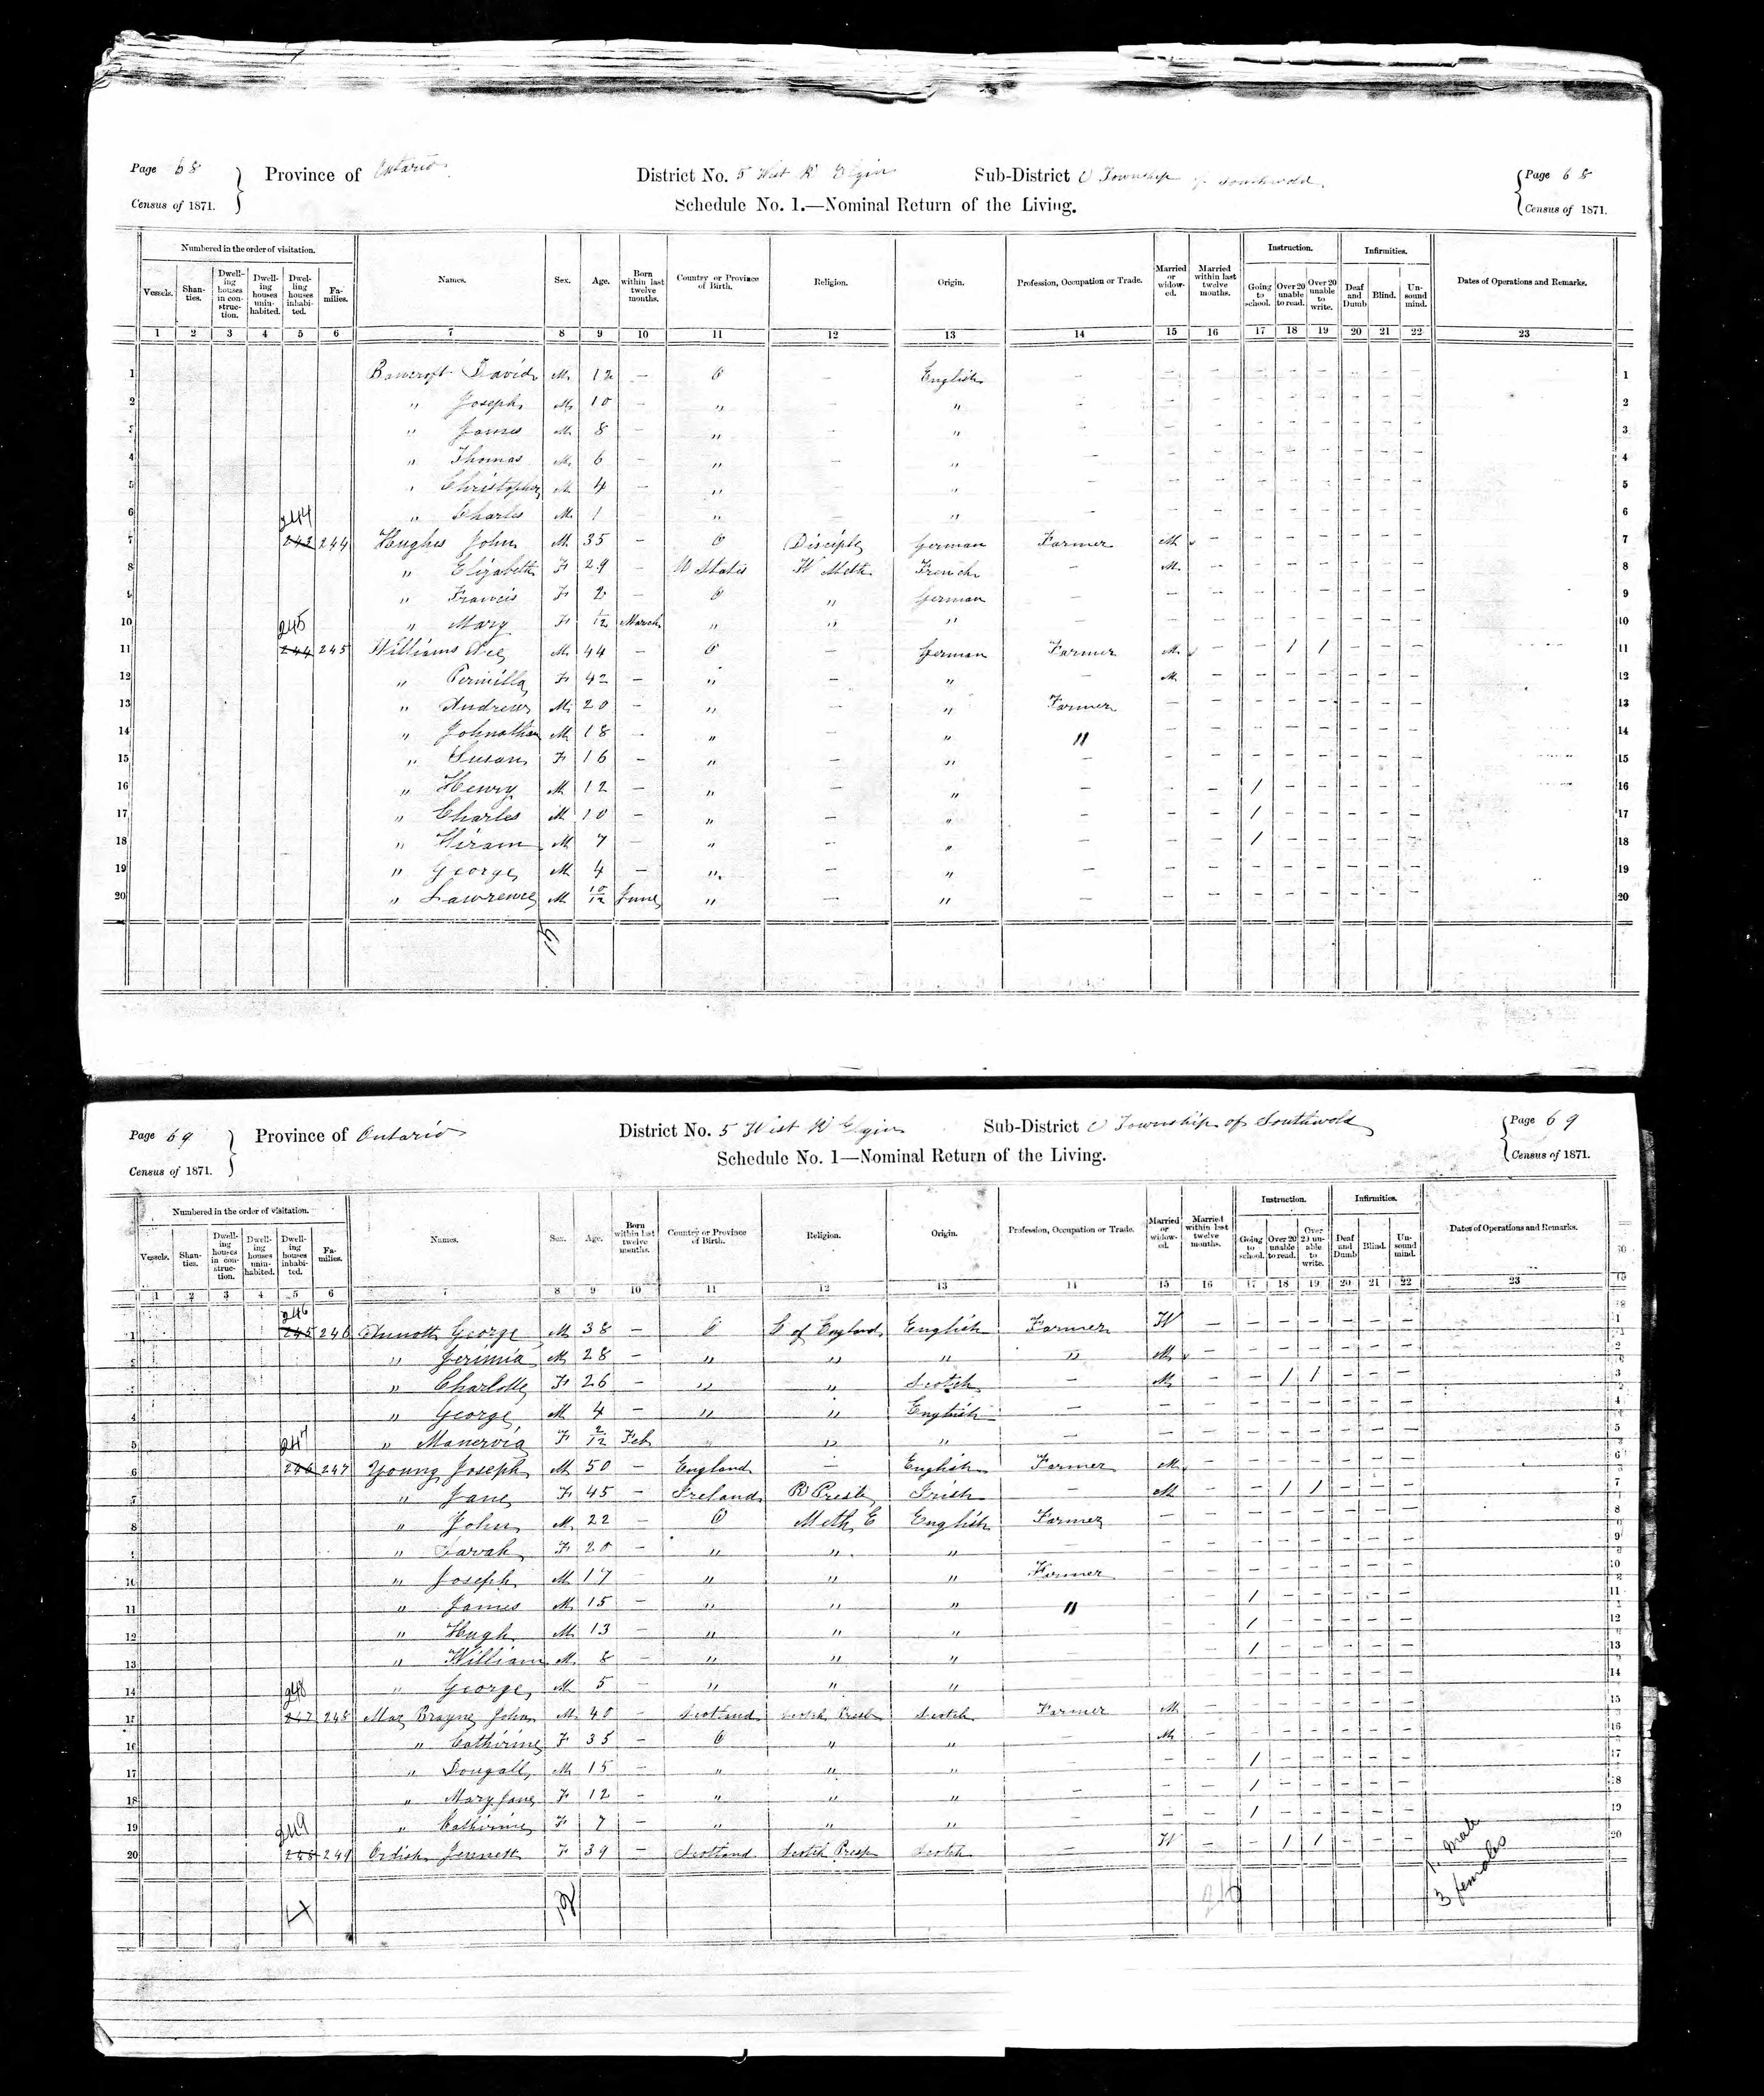 Page 68
Census of 1871.
Province of Ontario
District No. 5 West R Elgin
Sub-District U Township of Southwold
Page 68
Census of 1871.
Schedule No. 1.—Nominal Return of the Living.
Numbered in the order of visitation. Instruction. Infirmities.
Vessels. Shan-ties. Dwell-ing houses in con-struc-tion. Dwell-ing houses unin-habited. Dwel-ling houses inhabi-ted. Fa-milies. Names. Sex. Age. Born within last twelve months. Country or Province of Birth. Religion. Origin. Profession, Occupation or Trade. Married or widow-ed. Married within last twelve months. Going to school. Over 20 unable to read. Over 20 unable to write. Deaf and Dumb Blind. Un-sound mind. Dates of Operations and Remarks.
1 2 3 4 5 6 7 8 9 10 11 12 13 14 15 16 17 18 19 20 21 22 23
1 Bancroft David M 12 — O — English — — — — — — — — — 1
2 " Joseph M 10 — " — " — — — — — — — — — 2
3 " James M 8 — " — " — — — — — — — — — 3
4 " Thomas M 6 — " — " — — — — — — — — — 4
5 " Christopher M 4 — " — " — — — — — — — — — 5
6 " Charles M 1 — " — " — — — — — — — — — 6
244
7 243 244 Hughes John M 35 — O Disciple German Farmer M — — — — — — — 7
8 " Elizabeth F 29 — U States W Meth French — M — — — — — — — 8
9 " Francis F 2 — O " German — — — — — — — — — 9
10 " Mary F 1/12 March " " " — — — — — — — — — 10
245
11 244 245 Williams M 44 — O German Farmer M — — 1 1 — — — 11
12 " Permilla F 42 — " — " — M — — — — — — — 12
13 " Andrew M 20 — " — " Farmer — — — — — — — — 13
14 " Johnathan M 18 — " — " " — — — — — — — — 14
15 " Susan F 16 — " — " — — — — — — — — — 15
16 " Henry M 12 — " — " — — — 1 — — — — — 16
17 " Charles M 10 — " — " — — — 1 — — — — — 17
18 " Hiram M 7 — " — " — — — 1 — — — — — 18
19 " George M 4 — " — " — — — — — — — — — 19
20 " Lawrence M 10/12 June " — " — — — — — — — — — 20
15
Page 69
Census of 1871.
Province of Ontario
District No. 5 West R Elgin
Sub-District U Township of Southwold
Page 69
Census of 1871.
Schedule No. 1—Nominal Return of the Living.
Numbered in the order of visitation. Instruction. Infirmities.
Vessels. Shan-ties. Dwell-ing houses in con-struc-tion. Dwell-ing houses unin-habited. Dwel-ling houses inhabi-ted. Fa-milies. Names. Sex. Age. Born within last twelve months. Country or Province of Birth. Religion. Origin. Profession, Occupation or Trade. Married or widow-ed. Married within last twelve months. Going to school. Over 20 unable to read. Over 20 un-able to write. Deaf and Dumb Blind. Un-sound mind. Dates of Operations and Remarks.
1 2 3 4 5 6 7 8 9 10 11 12 13 14 15 16 17 18 19 20 21 22 23
246
1 245 246 George M 38 — O C of England English Farmer W — — — — — — — 1
2 " Jerimia M 28 — " " " " M — — — — — — — 2
3 " Charlotte F 26 — " " Scotch — M — — 1 1 — — — 3
4 " George M 4 — " " English — — — — — — — — — 4
5 " Manervia F 2/12 Feb " " " — — — — — — — — — 5
247
6 246 247 Young Joseph M 50 — England — English Farmer M — — — — — — — 6
7 " Jane F 45 — Ireland R Presb Irish — M — — 1 1 — — — 7
8 " John M 22 — O Meth E English Farmer — — — — — — — — 8
9 " Sarah F 20 — " " " — — — — — — — — — 9
10 " Joseph M 17 — " " " Farmer — — — — — — — — 10
11 " James M 15 — " " " " — — 1 — — — — — 11
12 " Hugh M 13 — " " " — — — 1 — — — — — 12
13 " William M 8 — " " " — — — 1 — — — — — 13
14 " George M 5 — " " " — — — — — — — — — 14
248
15 247 248 John M 40 — Scotland Scotch Presb Scotch Farmer M — — — — — — — 15
16 " Catherine F 35 — O " " — M — — — — — — — 16
17 " Dougall M 15 — " " " — — — 1 — — — — — 17
18 " Mary Jane F 12 — " " " — — — 1 — — — — — 18
19 " Catherine F 7 — " " " — — — 1 — — — — — 19
249
20 248 249 Ordish Jennett F 39 — Scotland Scotch Presp Scotch — W — — 1 1 — — — 20
1 male
3 females
4 12